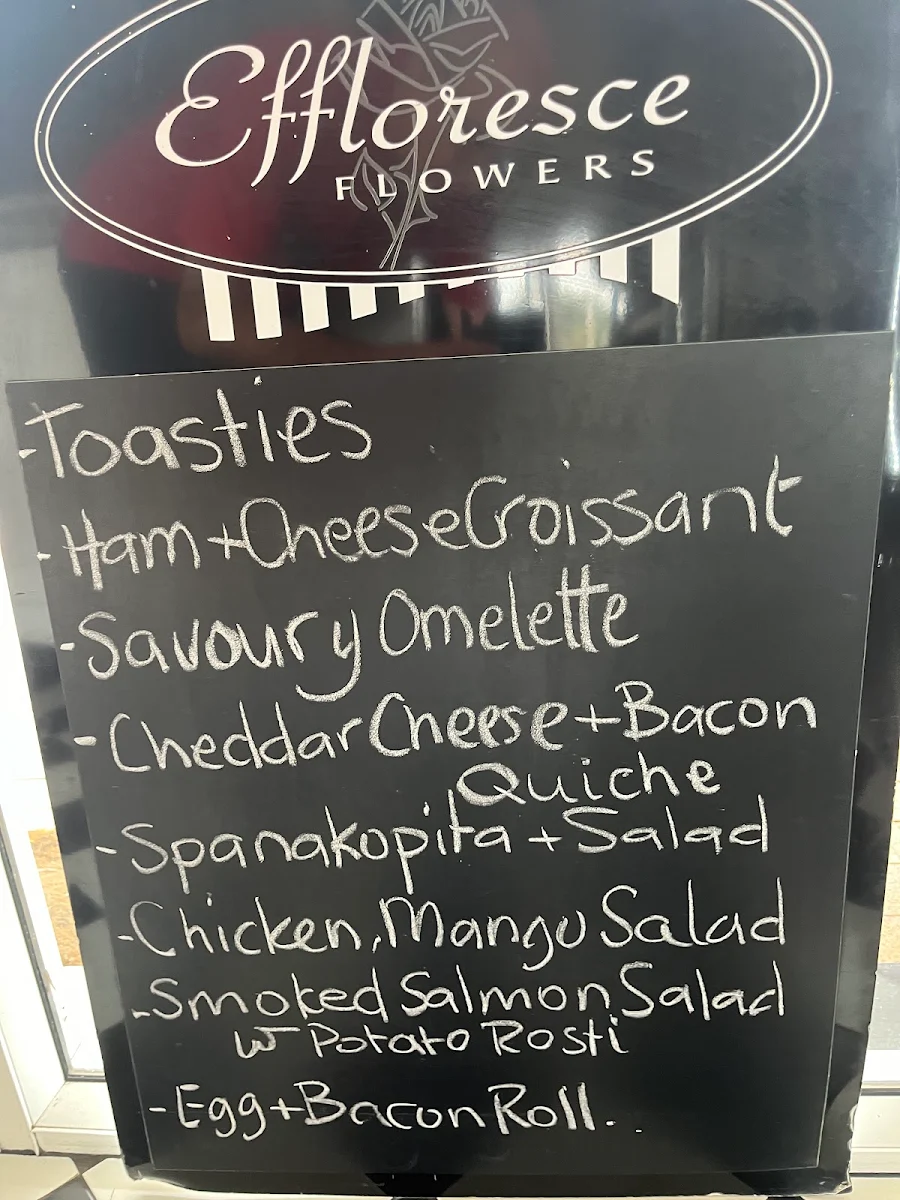 Effloresce
FLOWERS
-Toasties
-Ham + Cheese Croissant
-Savoury Omelette
-Cheddar Cheese + Bacon
Quiche
-Spanakopita + Salad
-Chicken, Mango Salad
-Smoked Salmon Salad
w Potato Rosti
-Egg + Bacon Roll.